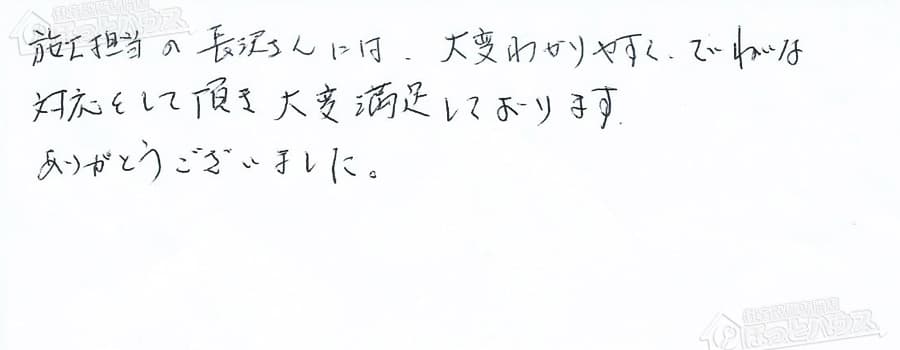 施工担当の長沢さんには、大変わかりやすく、ていねいな
対応をして頂き大変満足しております。
ありがとうございました。
住宅設備専門店
ほっとハウス